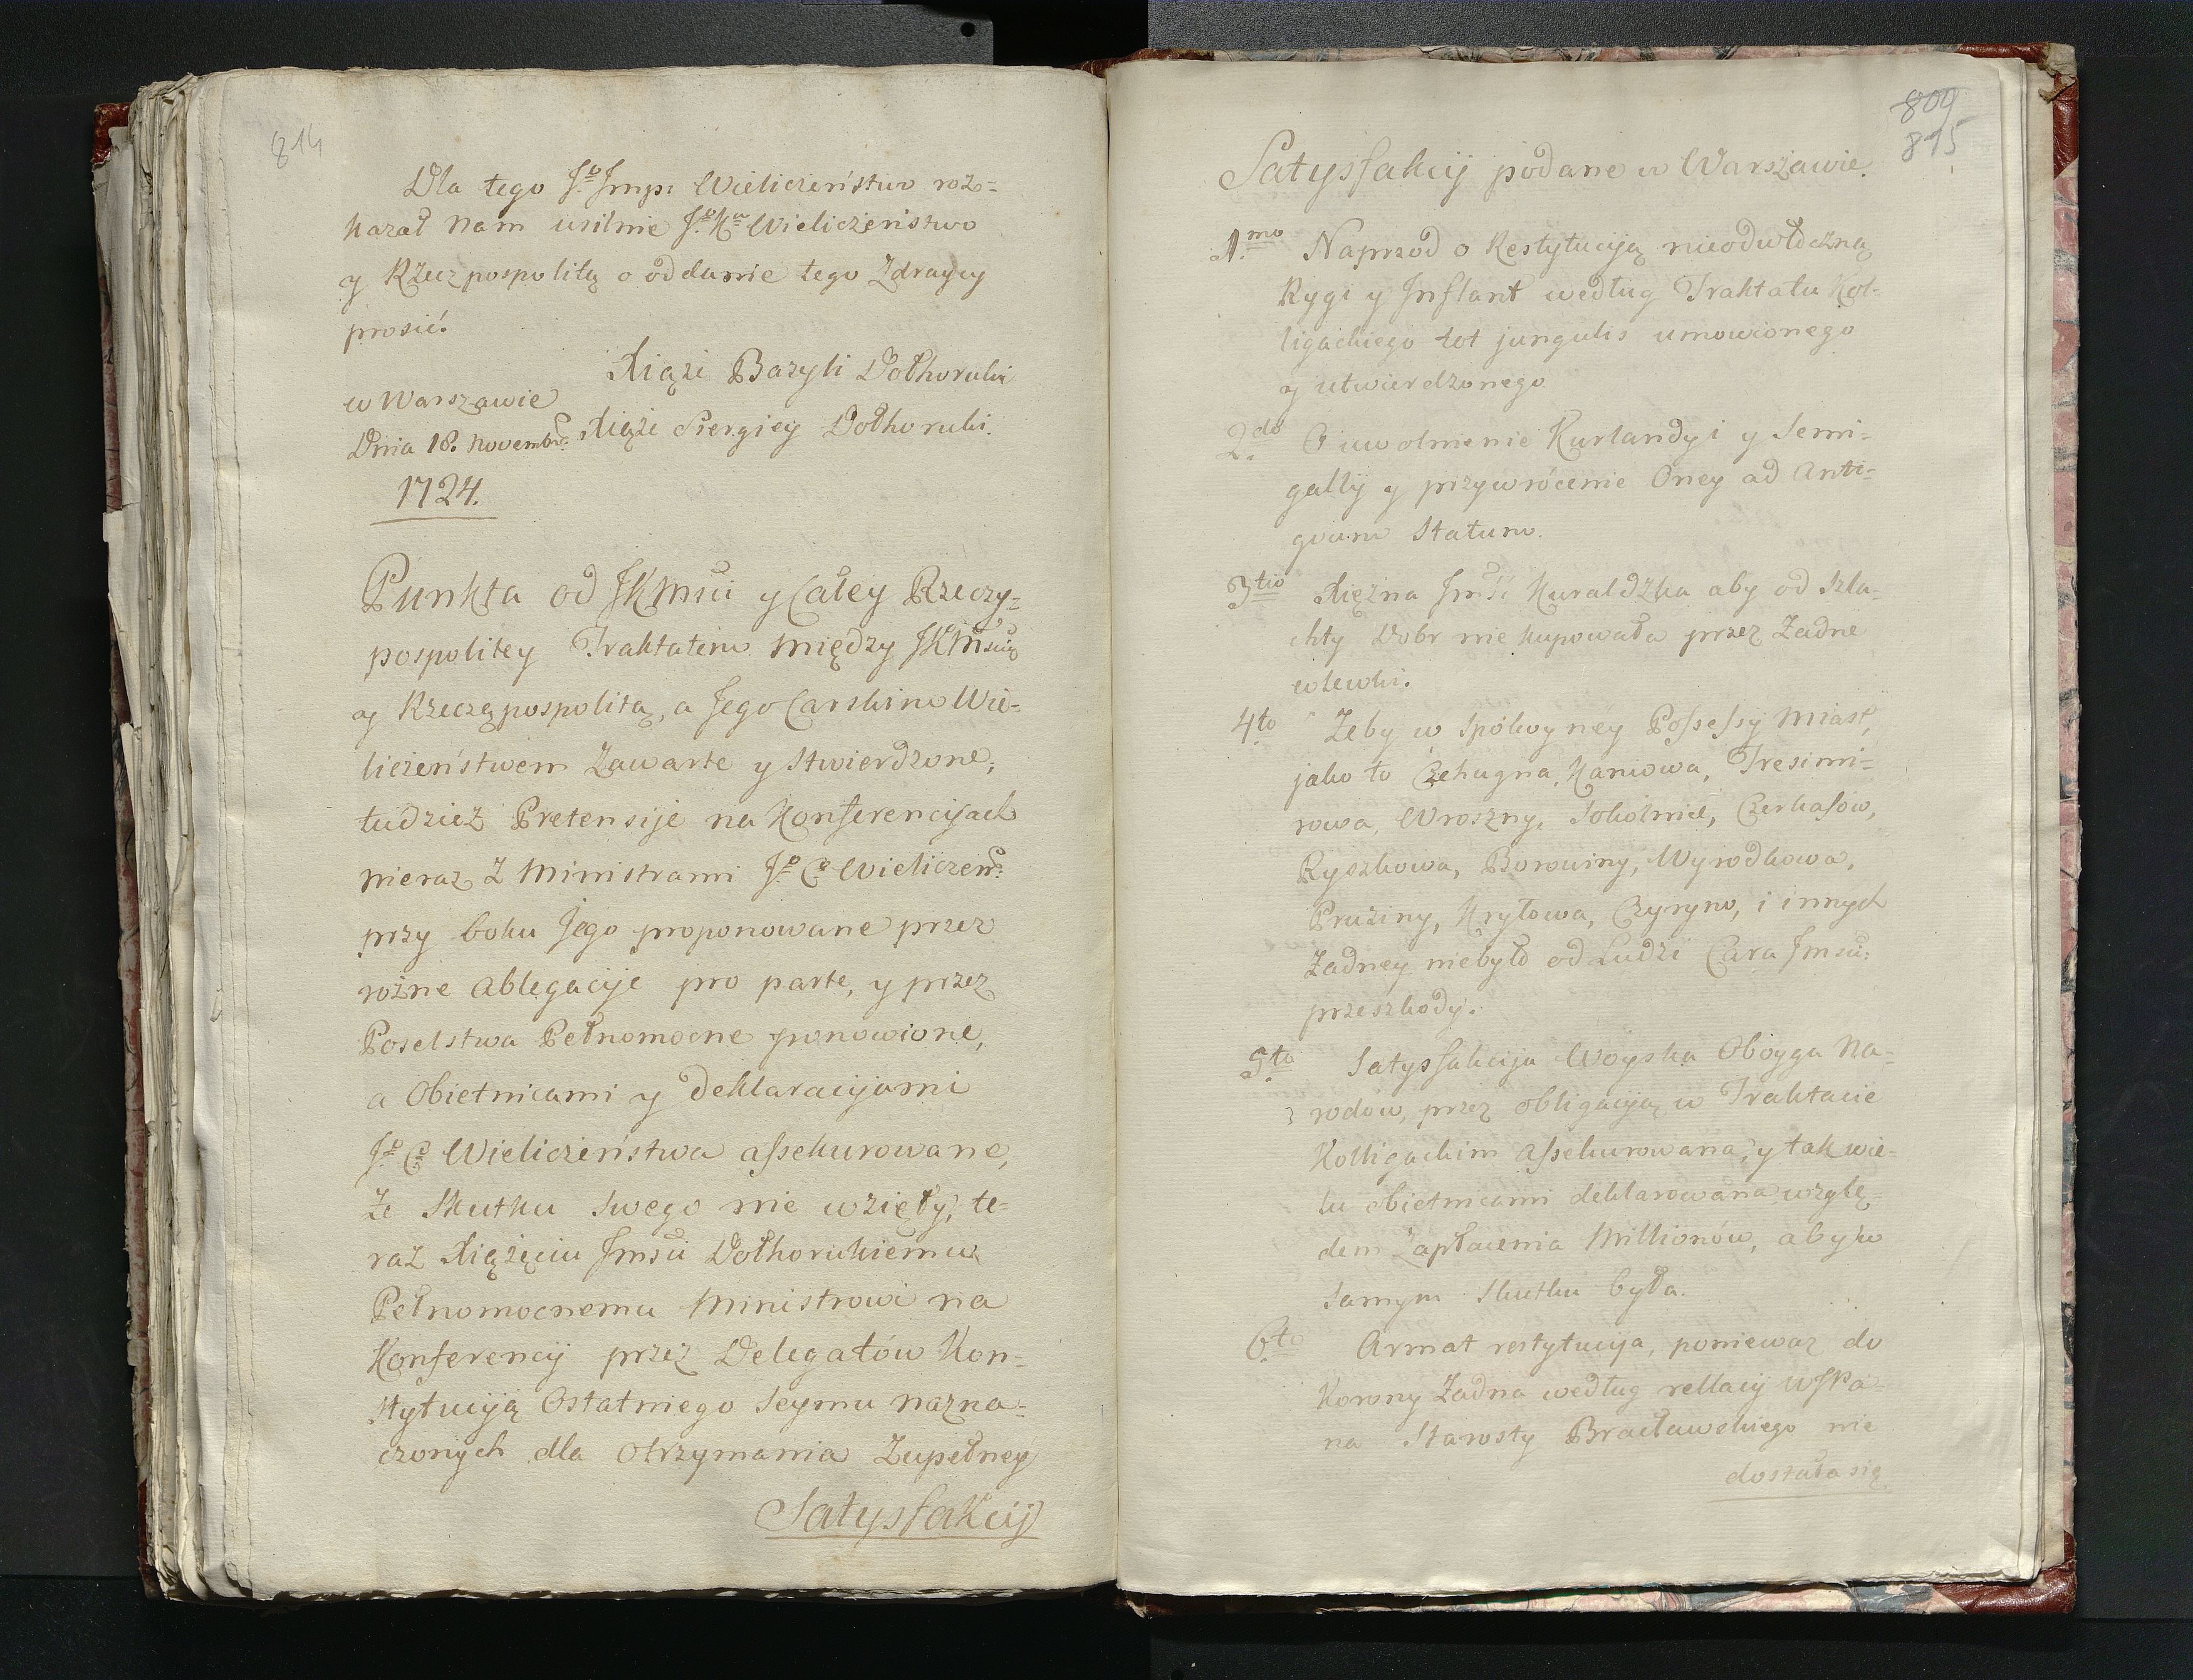 814
Dla tego Jo Imp: Wieliczeństwo roz=
kazał Nam usilnie Jo Kw Wieliczeństwo
y Rzeczpospolitą o oddanie tego Zdraycy
prosić.
Xiąże Bazyli Dołhoruki
w Warszawie
Dnia 18. Novembr: Xiąże Siergiey Dołhoruki.
1724.
Punkta od JKMsci y Całey Rzeczy=
pospolitey Traktatem między JKMscią
y Rzecząpospolitą, a Jego Carskim Wie=
liczeństwem Zawarte y Stwierdzone,
tudzież Pretensije na Konferencyjach
nieraz z Ministrami Jo Co Wieliczeń:
przy boku Jego proponowane przez
rożne Ablegacije pro parte, y przez
Poselstwa Pełnomocne ponowione,
a Obietnicami y deklaracyjami
Jo Co Wieliczeństwa assekurowane,
że Skutku Swego nie wzięły, te-
raz Xiążęciu Jmsci Dołhorukiemu
Pełnomocnemu Ministrowi na
Konferencij przez Delegatów Kon=
stytuciją Ostatniego Seymu nazna=
czonych dla Otrzymania Zupełney
Satysfakcij
809
815
Satysfakcij podane w Warszawie.
1.mo Naprzod o Restytuciją nieodwłoczną
Rygi y Inflant według Traktatu Kol=
ligackiego tot jungulis umowionego
y utwierdzonego
2.do O uwolnienie Kurlandyi y Semi=
gallij y przywrócenie Oney ad Anti=
quum Statum.
3tio Xiężna Jmści Kuraldzka aby od Szla=
chty Dobr nie kupowała przez Żadne
wlewki.
4to Żeby w Spokoyney Possessij Miast,
jako to Czehugna, Kaniowa, Tresimi=
rowa, Wroszny, Sokolnie, Czerkasow,
Ryszkowa, Borowiny, Wyrodkowa,
Prużiny, Kryłowa, Czyryno, i innych
Żadney niebyło od Ludzi Cara Jmsci:
przeszkody.
5.to Satysfakcija Woyska Oboyga Na-
rodów, przez obligaciją w Traktacie
Kolligackim assekurowana, y tak wie-
lu obietnicami deklarowana wzglę=
dem Zapłacenia Millionów, aby w
samym Skutku była.
6.to Armat restytucija, poniewaz do
Korony Żadna według rellacij WJPa
na Starosty Bracławskiego nie
dostała się